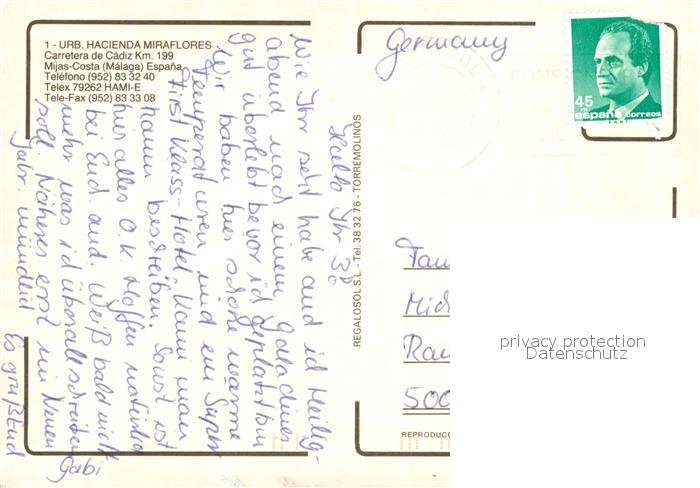 1 - URB. HACIENDA MIRAFLORES
Carretera de Cádiz Km. 199
Mijas-Costa (Málaga) España
Teléfono (952) 83 32 40
Telex 79262 HAMI-E
Tele-Fax (952) 83 33 08
Germany
45
españa correos
Hallo Ihr 3!
Wie Ihr seht habe auch ich Heilig-
abend nach einem Galadiner
gut überlebt bevor ich geplatzt bin
Wir haben hier schöne warme
Temperaturen und ein Super
First Klass-Hotel kann man
kaum beschreiben. Sonst ist
hier alles O.K. Hoffen natürlich
bei Euch auch. Weiß bald nicht
mehr was ich überall schreiben
soll. Näheres erst im Neuen
Jahr. mündlich
Es grüßt Euch
Gabi
REGALOSOL S.L. - Tel. 38 32 76 - TORREMOLINOS
Fam
Mich
Rau
500
privacy protection
Datenschutz
REPRODUC